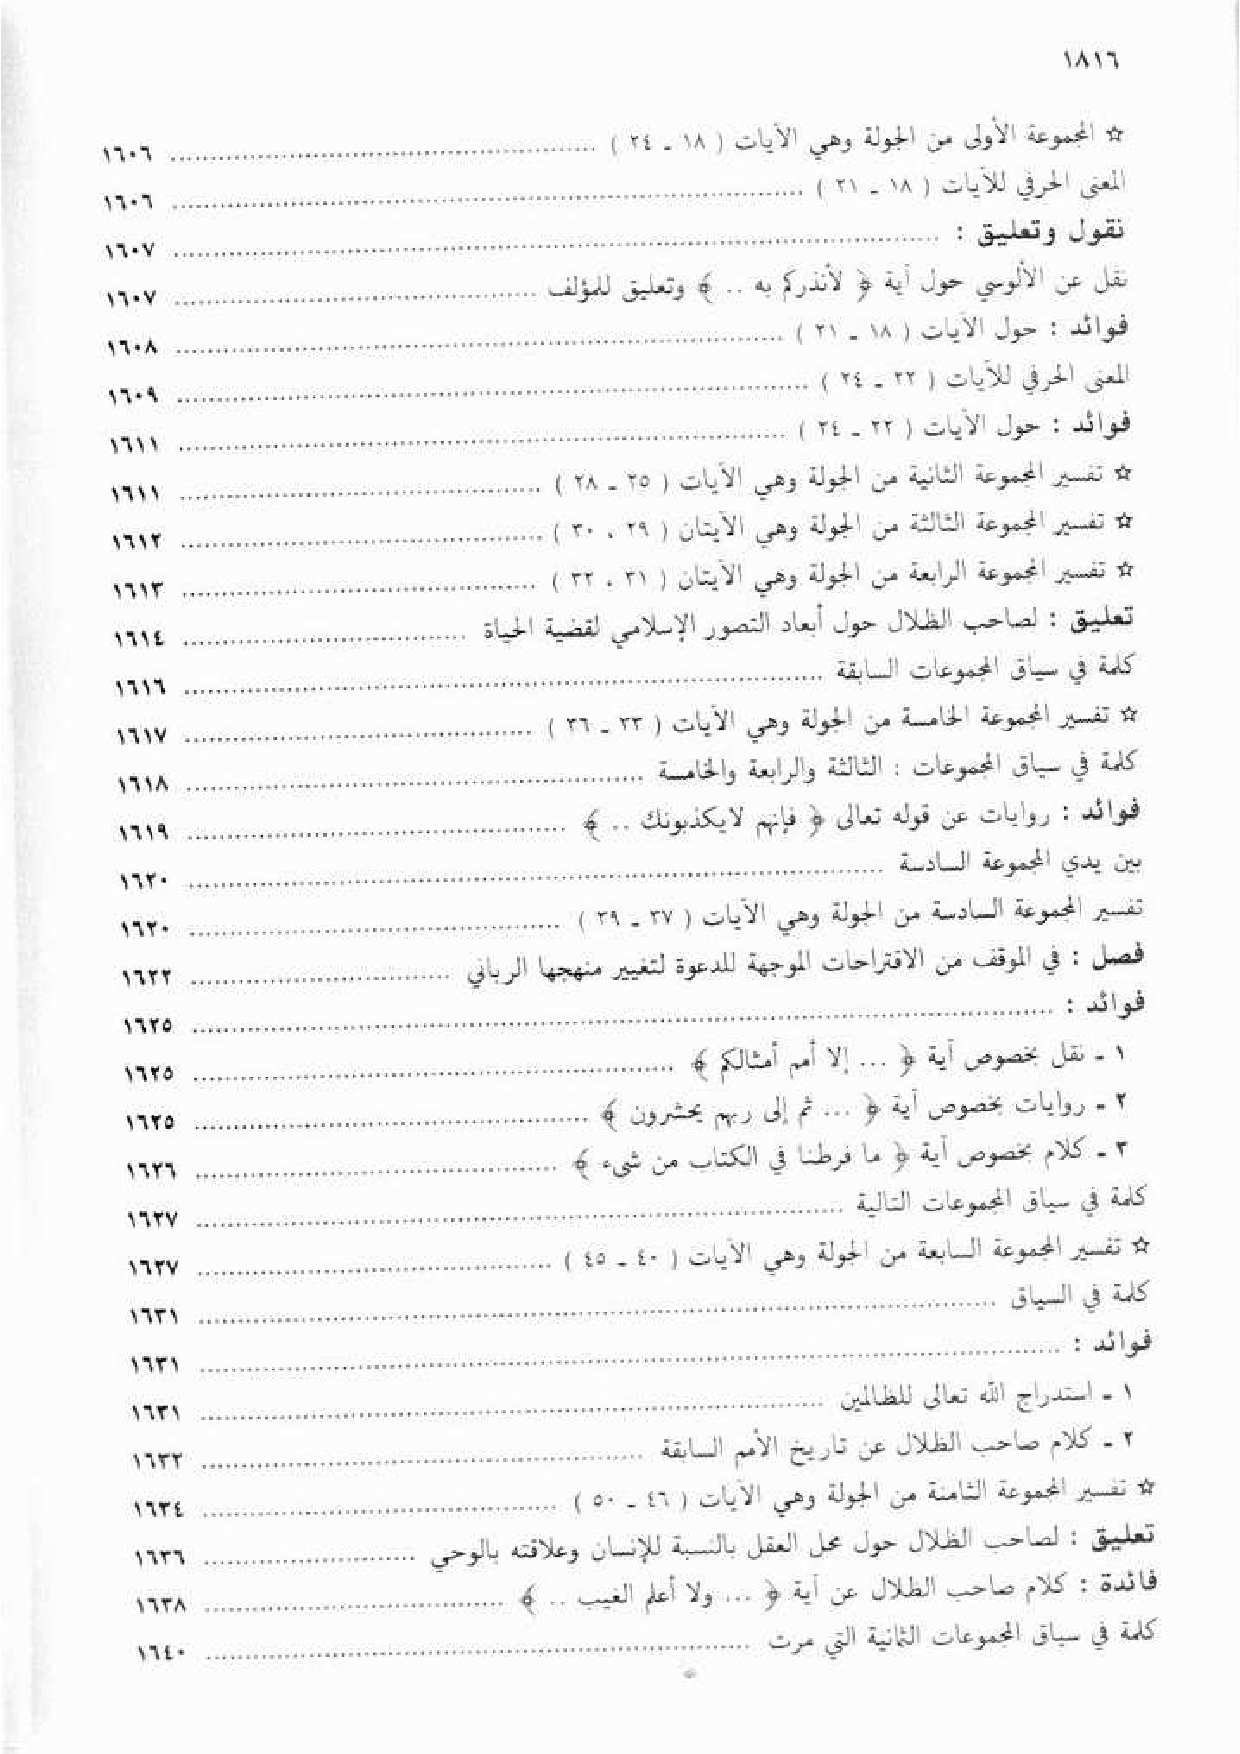 ١٨١٦
☆ المجموعة الأولى من الجولة وهي الآيات ( ١٨ ـ ٢٤ ) ........ ١٦٠٦
المعنى الحرفي للآيات ( ١٨ ـ ٢١ ) ........ ١٦٠٦
نقول وتعليق : ........ ١٦٠٧
نقل عن الألوسي حول آية ﴿ لأنذركم به .. ﴾ وتعليق للمؤلف ........ ١٦٠٧
فوائد : حول الآيات ( ١٨ ـ ٢١ ) ........ ١٦٠٨
المعنى الحرفي للآيات ( ٢٢ ـ ٢٤ ) ........ ١٦٠٩
فوائد : حول الآيات ( ٢٢ ـ ٢٤ ) ........ ١٦١١
☆ تفسير المجموعة الثانية من الجولة وهي الآيات ( ٢٥ ـ ٢٨ ) ........ ١٦١١
☆ تفسير المجموعة الثالثة من الجولة وهي الآيتان ( ٢٩ ، ٣٠ ) ........ ١٦١٢
☆ تفسير المجموعة الرابعة من الجولة وهي الآيتان ( ٣١ ، ٣٢ ) ........ ١٦١٣
تعليق : لصاحب الظلال حول أبعاد التصور الإسلامي لقضية الحياة ........ ١٦١٤
كلمة في سياق المجموعات السابقة ........ ١٦١٦
☆ تفسير المجموعة الخامسة من الجولة وهي الآيات ( ٣٣ ـ ٣٦ ) ........ ١٦١٧
كلمة في سياق المجموعات : الثالثة والرابعة والخامسة ........ ١٦١٨
فوائد : روايات عن قوله تعالى ﴿ فإنهم لايكذبونك .. ﴾ ........ ١٦١٩
بين يدي المجموعة السادسة ........ ١٦٢٠
تفسير المجموعة السادسة من الجولة وهي الآيات ( ٣٧ ـ ٣٩ ) ........ ١٦٢٠
فصل : في الموقف من الاقتراحات الموجهة للدعوة لتغيير منهجها الرباني ........ ١٦٢٢
فوائد : ........ ١٦٢٥
١ ـ نقل بخصوص آية ﴿ ... إلا أمم أمثالكم ﴾ ........ ١٦٢٥
٢ ـ روايات بخصوص آية ﴿ ... ثم إلى ربهم يحشرون ﴾ ........ ١٦٢٥
٣ ـ كلام بخصوص آية ﴿ ما فرطنا في الكتاب من شيء ﴾ ........ ١٦٢٦
كلمة في سياق المجموعات التالية ........ ١٦٢٧
☆ تفسير المجموعة السابعة من الجولة وهي الآيات ( ٤٠ ـ ٤٥ ) ........ ١٦٢٧
كلمة في السياق ........ ١٦٣١
فوائد : ........ ١٦٣١
١ ـ استدراج الله تعالى للظالمين ........ ١٦٣١
٢ ـ كلام صاحب الظلال عن تاريخ الأمم السابقة ........ ١٦٣٢
☆ تفسير المجموعة الثامنة من الجولة وهي الآيات ( ٤٦ ـ ٥٠ ) ........ ١٦٣٤
تعليق : لصاحب الظلال حول محل العقل بالنسبة للإنسان وعلاقته بالوحي ........ ١٦٣٦
فائدة : كلام صاحب الظلال عن آية ﴿ ... ولا أعلم الغيب .. ﴾ ........ ١٦٣٨
كلمة في سياق المجموعات الثمانية التي مرت ........ ١٦٤٠